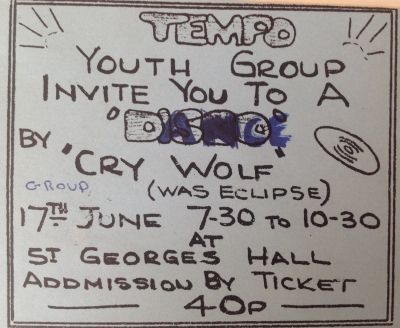 TEMPO
YOUTH GROUP
INVITE YOU TO A
BY "CRY WOLF"
GROUP (WAS ECLIPSE)
17TH JUNE 7-30 TO 10-30
AT
ST GEORGES HALL
ADDMISSION BY TICKET
40P